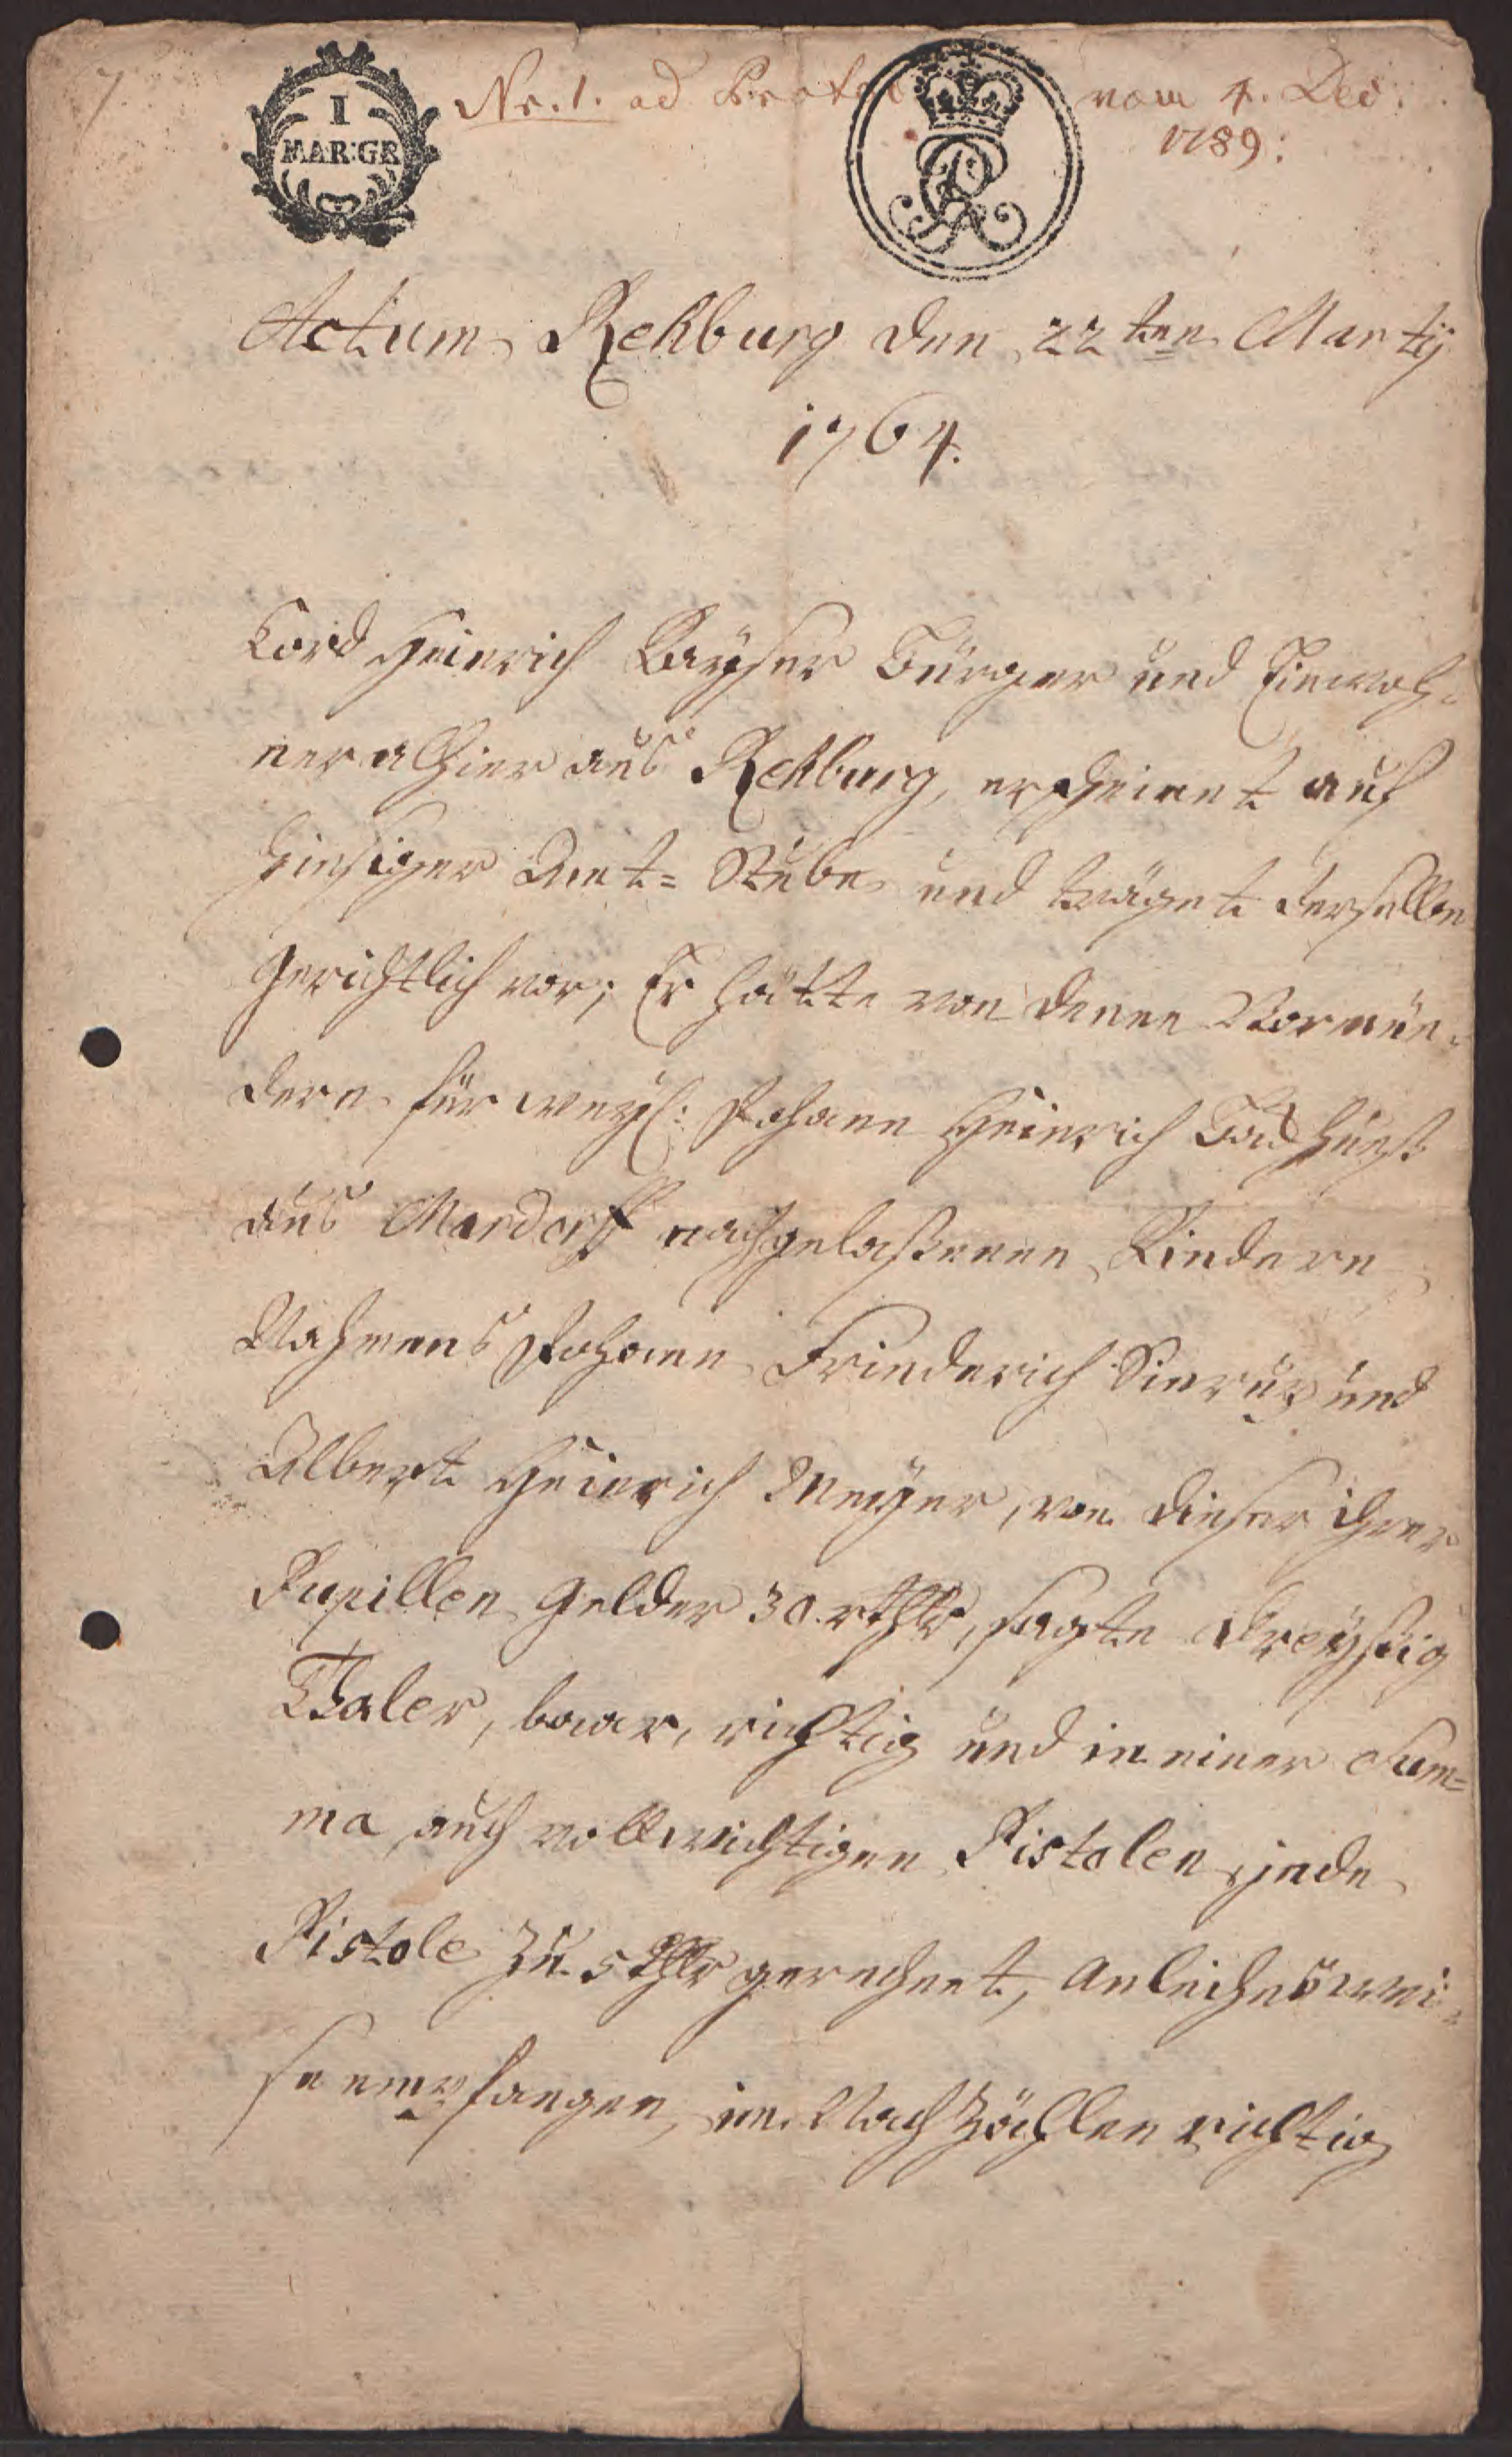 I
MAR:GR
Nr. 1. ad Protoc vom 4. Dec.
1789:
GR
Actum Rehburg den 22ten Martij
1764.
Cord Heinrich Bayser Bürger und Einwoh-
ner alhier aus Rehburg, erscheinet auf
hiesiger Amt= Stube und träget derselbe
gerichtlich vor; Er hätte von denen Vormün-
dern für weyl: Johann Heinrich
aus Mardorff nachgelaßenen Kindern
Nahmens Johann Friederich und
Albert Heinrich Meyer, von dieser ihrer
Pupillen Gelder 30. rthlr, sagte dreyßig
Thaler, baar, richtig und in einer Sum=
ma auch vollwichtigen Pistolen, jede
Pistole zu 5 thlr gerechnet, Anleihnswei-
se empfangen, im Nachzählen richtig